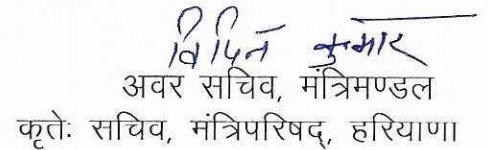 विपिन कुमार
अवर सचिव, मंत्रिमण्डल
कृतेः सचिव, मंत्रिपरिषद्, हरियाणा